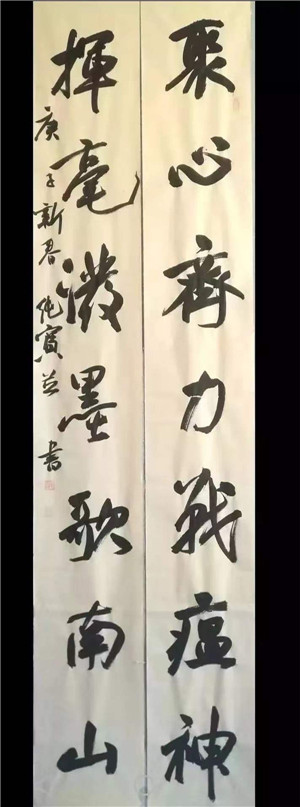 聚心齊力戰瘟神
揮毫潑墨歌南山
庚子新春 寅 並書